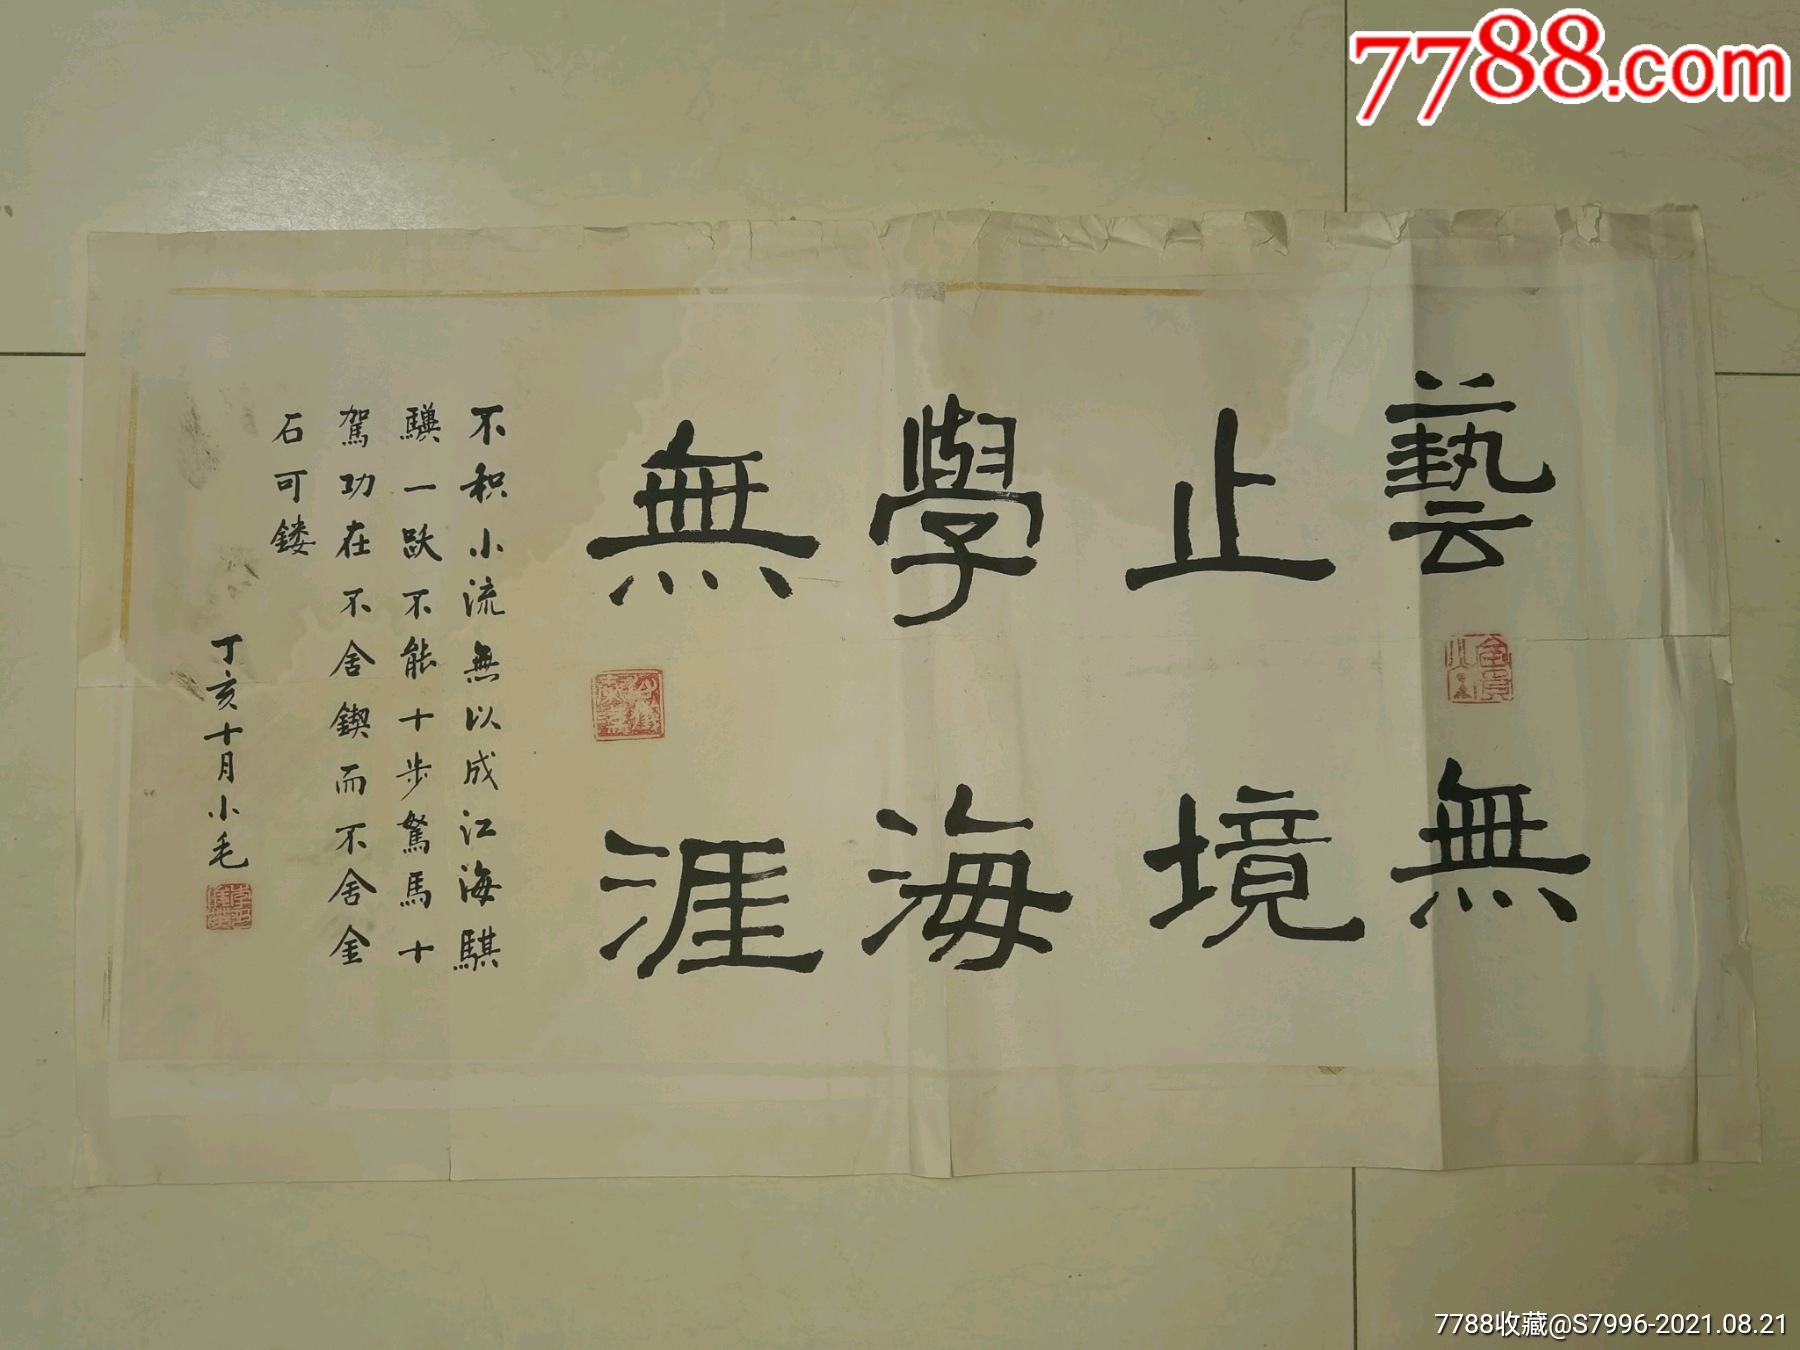 7788.com
藝無
止境
學海
無涯
不积小流無以成江海騏
驥一跃不能十步駑馬十
駕功在不舍鍥而不舍金
石可鏤
丁亥十月小毛
7788收藏@S7996-2021.08.21